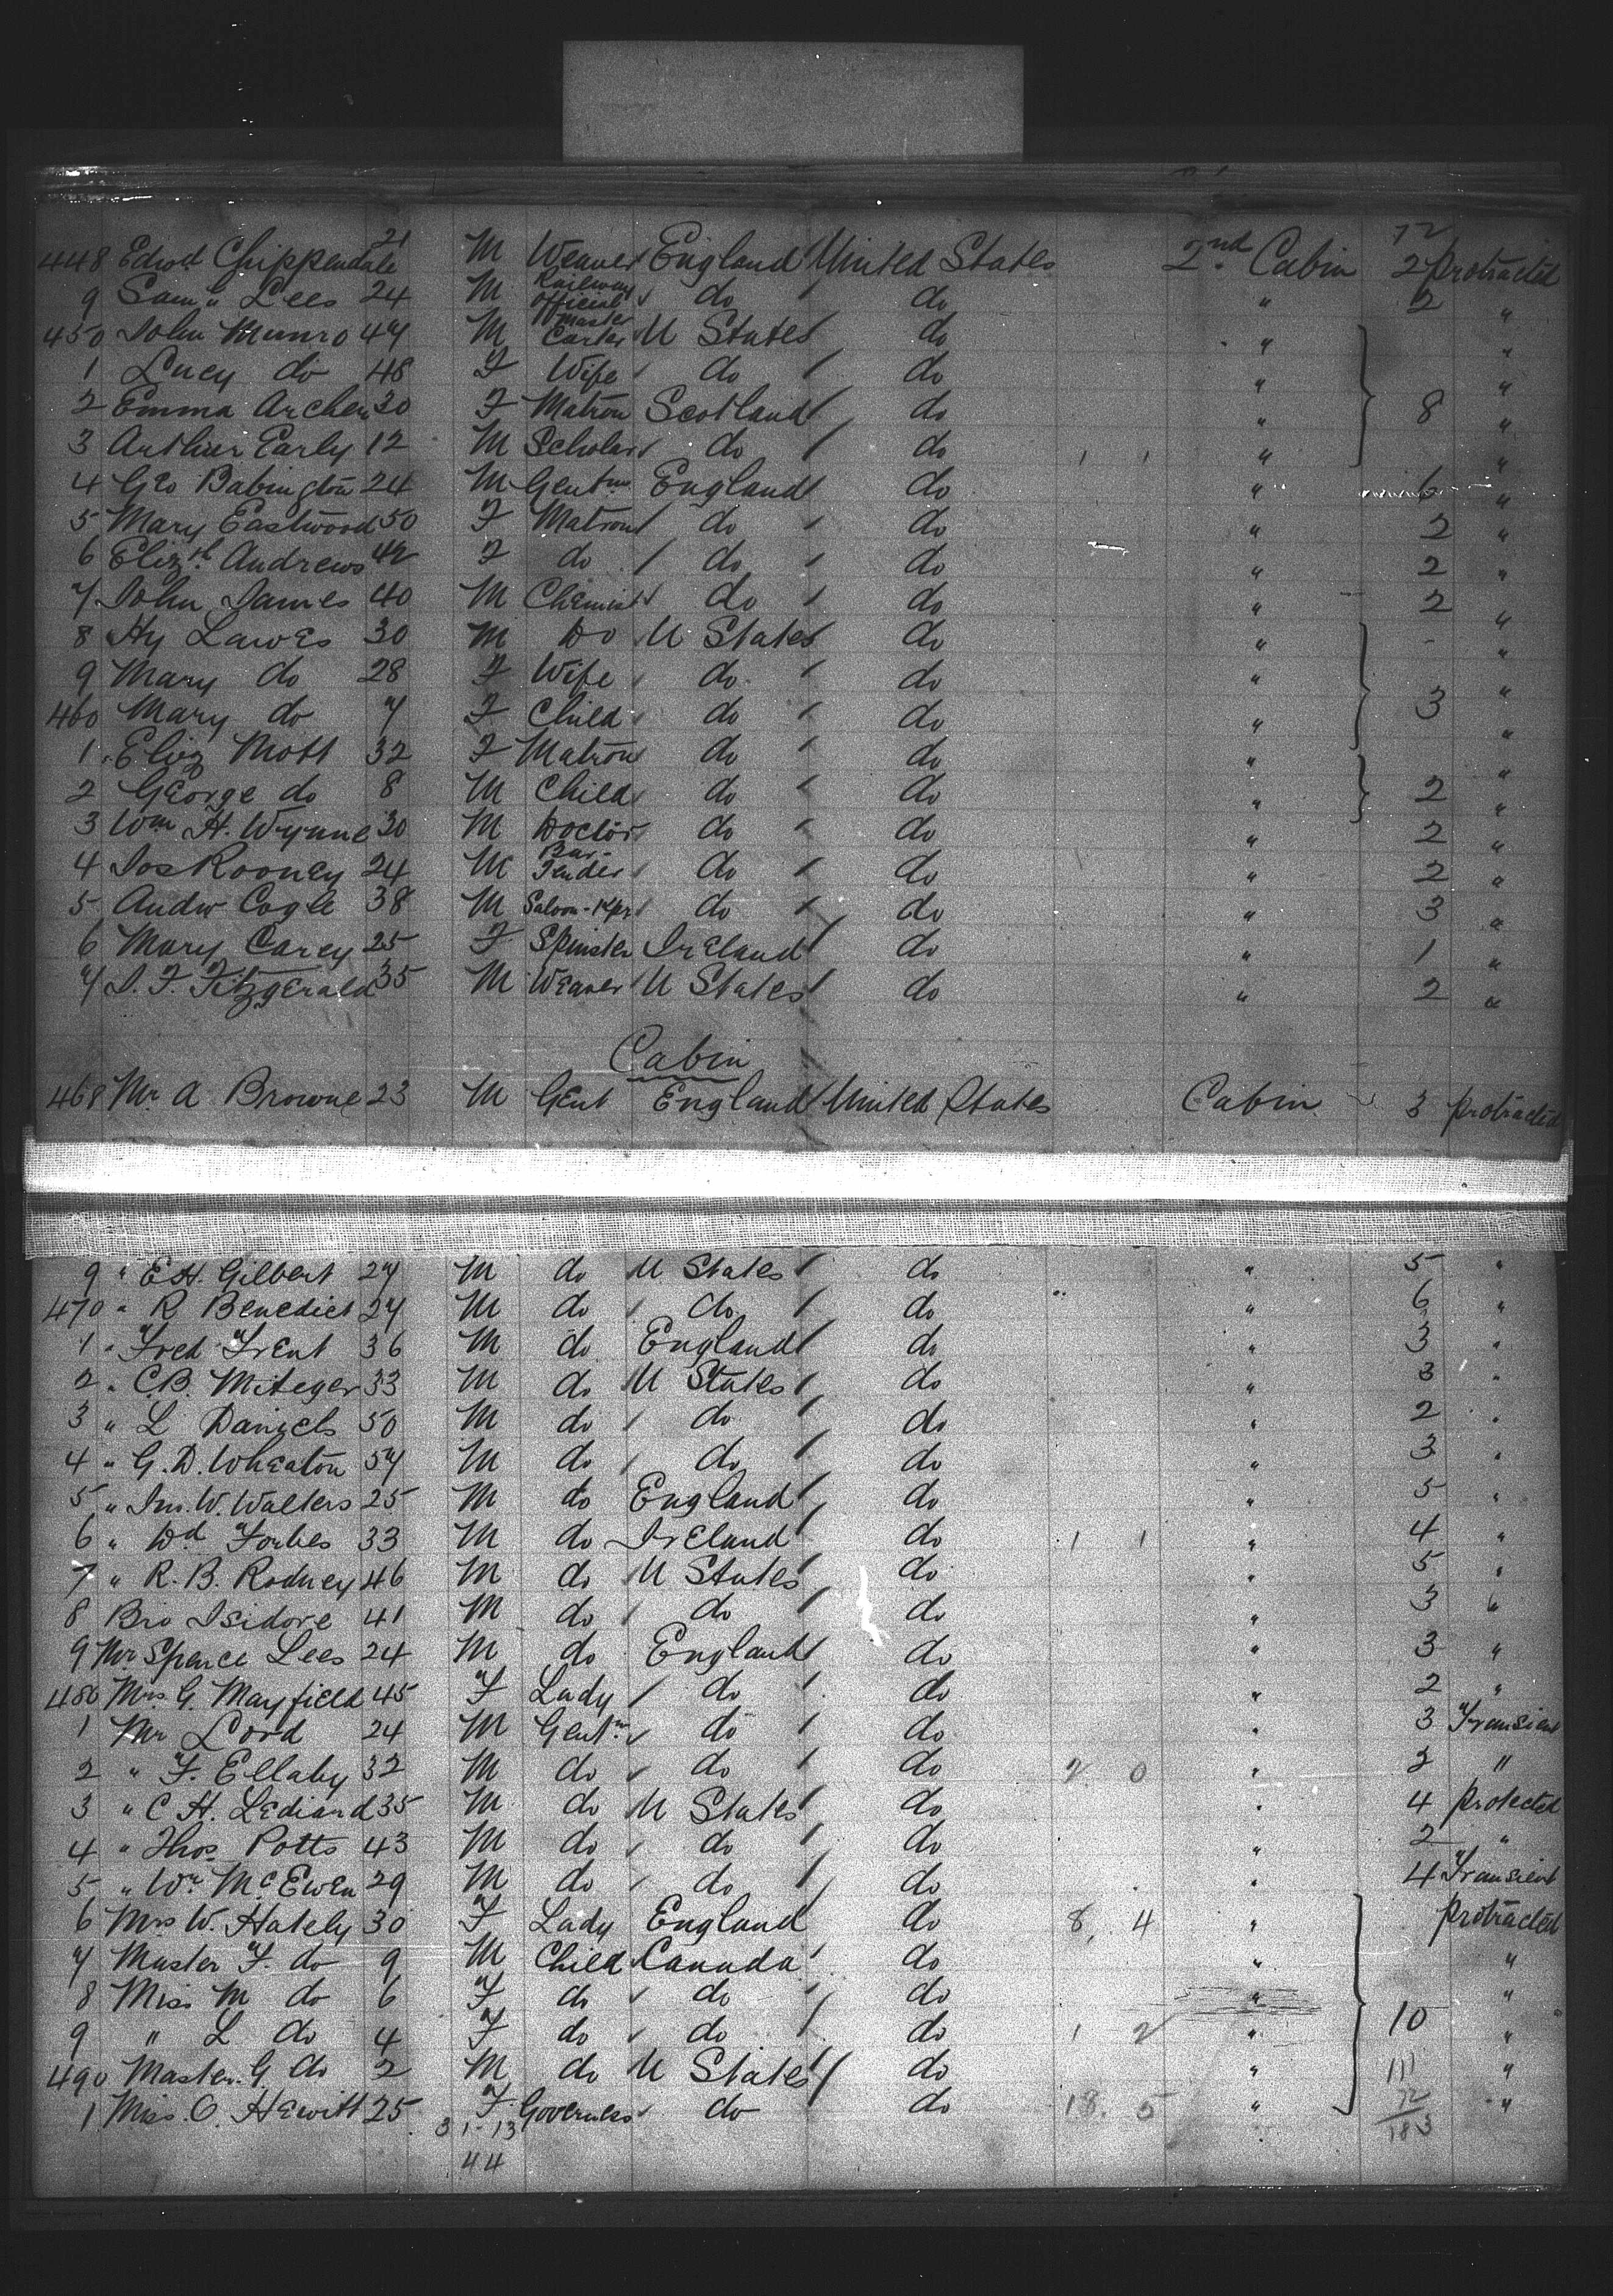 72
448 Edwd Chippendale 21 M Weaver England United States 2nd Cabin 2 protracted
9 Saml Lees 24 M Railway Official do do " 2 "
450 John Munro 47 M Master Carter U States do " "
1 Lucy do 48 F Wife do do " "
2 Emma Archer 30 F Matron Scotland do " 8 "
3 Arthur Early 12 M Scholar do do 1 1 " "
4 Geo Babington 24 M Gentm England do " 6 "
5 Mary Eastwood 50 F Matron do do " 2 "
6 Elizth Andrews 42 F do do do " 2 "
7 John James 40 M Chemist do do " 2 "
8 Hy Lawes 30 M Do U States do " "
9 Mary do 28 F Wife do do " "
460 Mary do 7 F Child do do " 3 "
1 Eliz Mott 32 F Matron do do " "
2 George do 8 M Child do do " 2 "
3 Wm H. Wynne 30 M Doctor do do " 2 "
4 Jos Rooney 24 M Bar-Tender do do " 2 "
5 Andw Cogle 38 M Saloon-Kpr do do " 3 "
6 Mary Carey 25 F Spinster Ireland do " 1 "
7 J. F. Fitzgerald 35 M Weaver U States do " 2 "
Cabin
468 Mr A Browne 23 M Gent England United States Cabin 3 protracted
9 " E H. Gilbert 27 M do U States do " 5 "
470 " R Benedict 27 M do do do " 6 "
1 " Fred Trent 36 M do England do " 3 "
2 " C.B. Miteger 33 M do U States do " 3 "
3 " L Daniels 50 M do do do " 2 "
4 " G. D. Wheaton 57 M do do do " 3 "
5 " Jno. W. Walters 25 M do England do " 5 "
6 " Dd Forbes 33 M do Ireland do 1 1 " 4 "
7 " R. B. Rodney 46 M do U States do " 5 "
8 Bro Isidore 41 M do do do " 3 "
9 Mr Spence Lees 24 M do England do " 3 "
480 Mrs. G. Mayfield 45 F Lady do do " 2 "
1 Mr Lord 24 M Gentn do do " 3 Transient
2 " F. Ellaby 32 M do do do 2 0 " 2 "
3 " C H. Lediard 35 M do U States do " 4 protected
4 " Thos Potts 43 M do do do " 2 "
5 " Wm McEwen 29 M do do do " 4 Transient
6 Mrs W. Hately 30 F Lady England do 8, 4 " protracted
7 Master F. do 9 M Child Canada do " "
8 Miss M do 6 F do do do " "
9 " L do 4 F do do do 1 2 " 10 "
490 Master. G do 2 M do U States do " 111 "
1 Miss. O. Hewitt 25 F Governess do do 13. 5 " 72 "
31-13 183
44